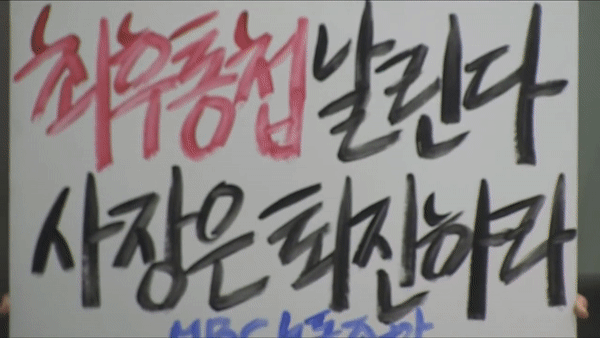 최후통첩 날린다
사장은 퇴진하라
MBC 노동조합